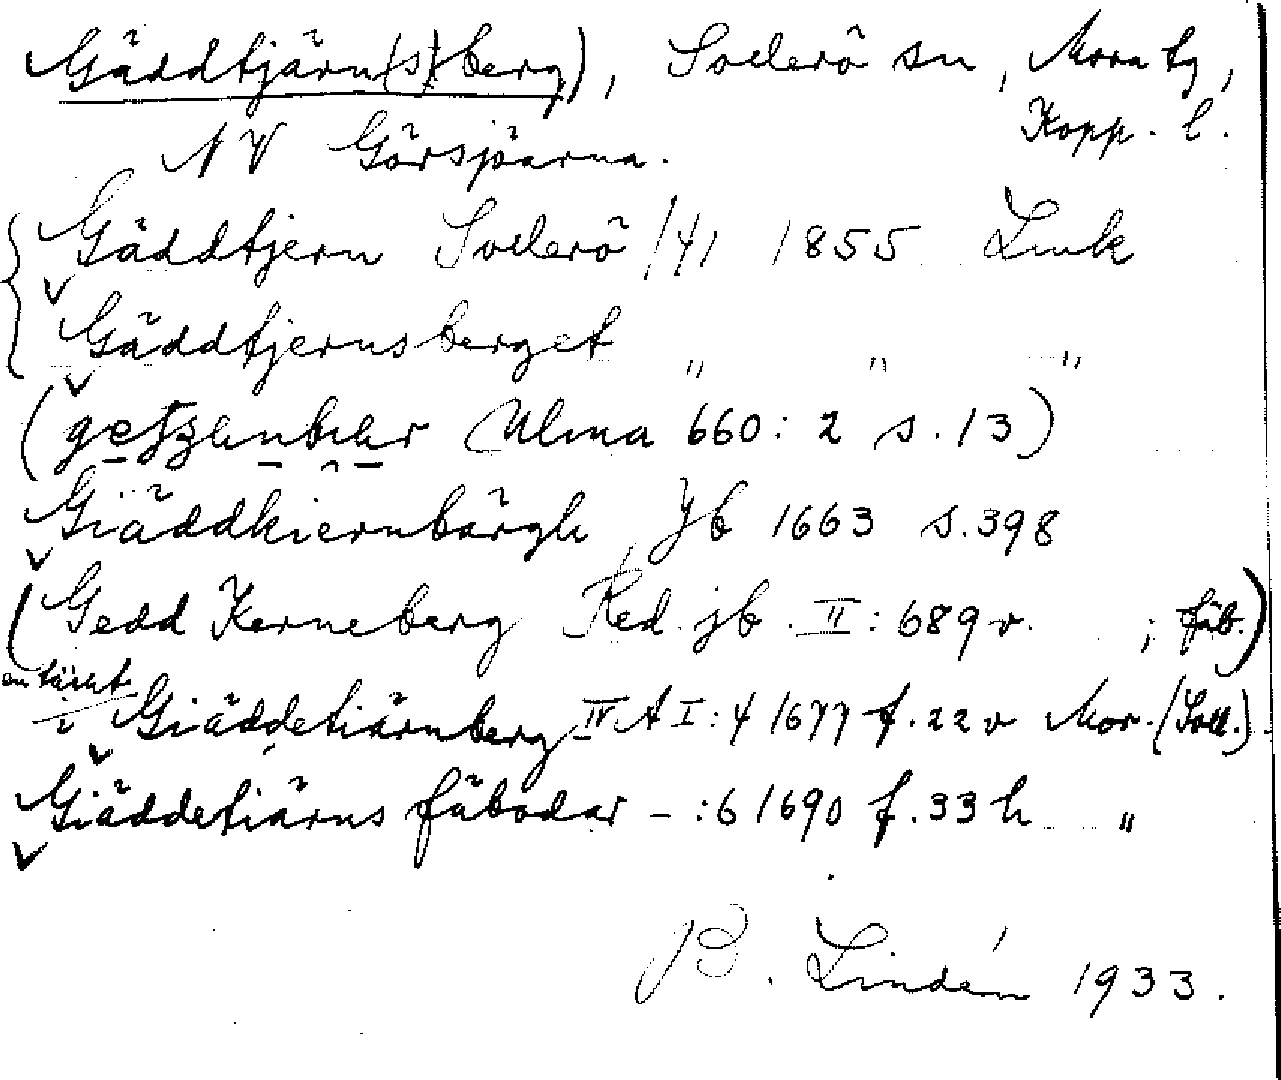 Gäddtjärn(s)(berg), Sollerö sn, Mora tg,
Kopp. l.
NV Görsjöarna.
Gäddtjern Sollerö /41 1855 Link
Gäddtjernsberget " " "
( Ulma 660:2 s.13)
Giäddkiernbärgh Jb 1663 s.398
(Gedd Kerneberg Red. jb. II:689v. ; fäb.)
en täckt
i Giäddetiärnberg IV A I:4 1677 f.22v Mor. (Soll.)
Giäddetiärns fäbodar – :6 1690 f.33h "
B. Lindén 1933.